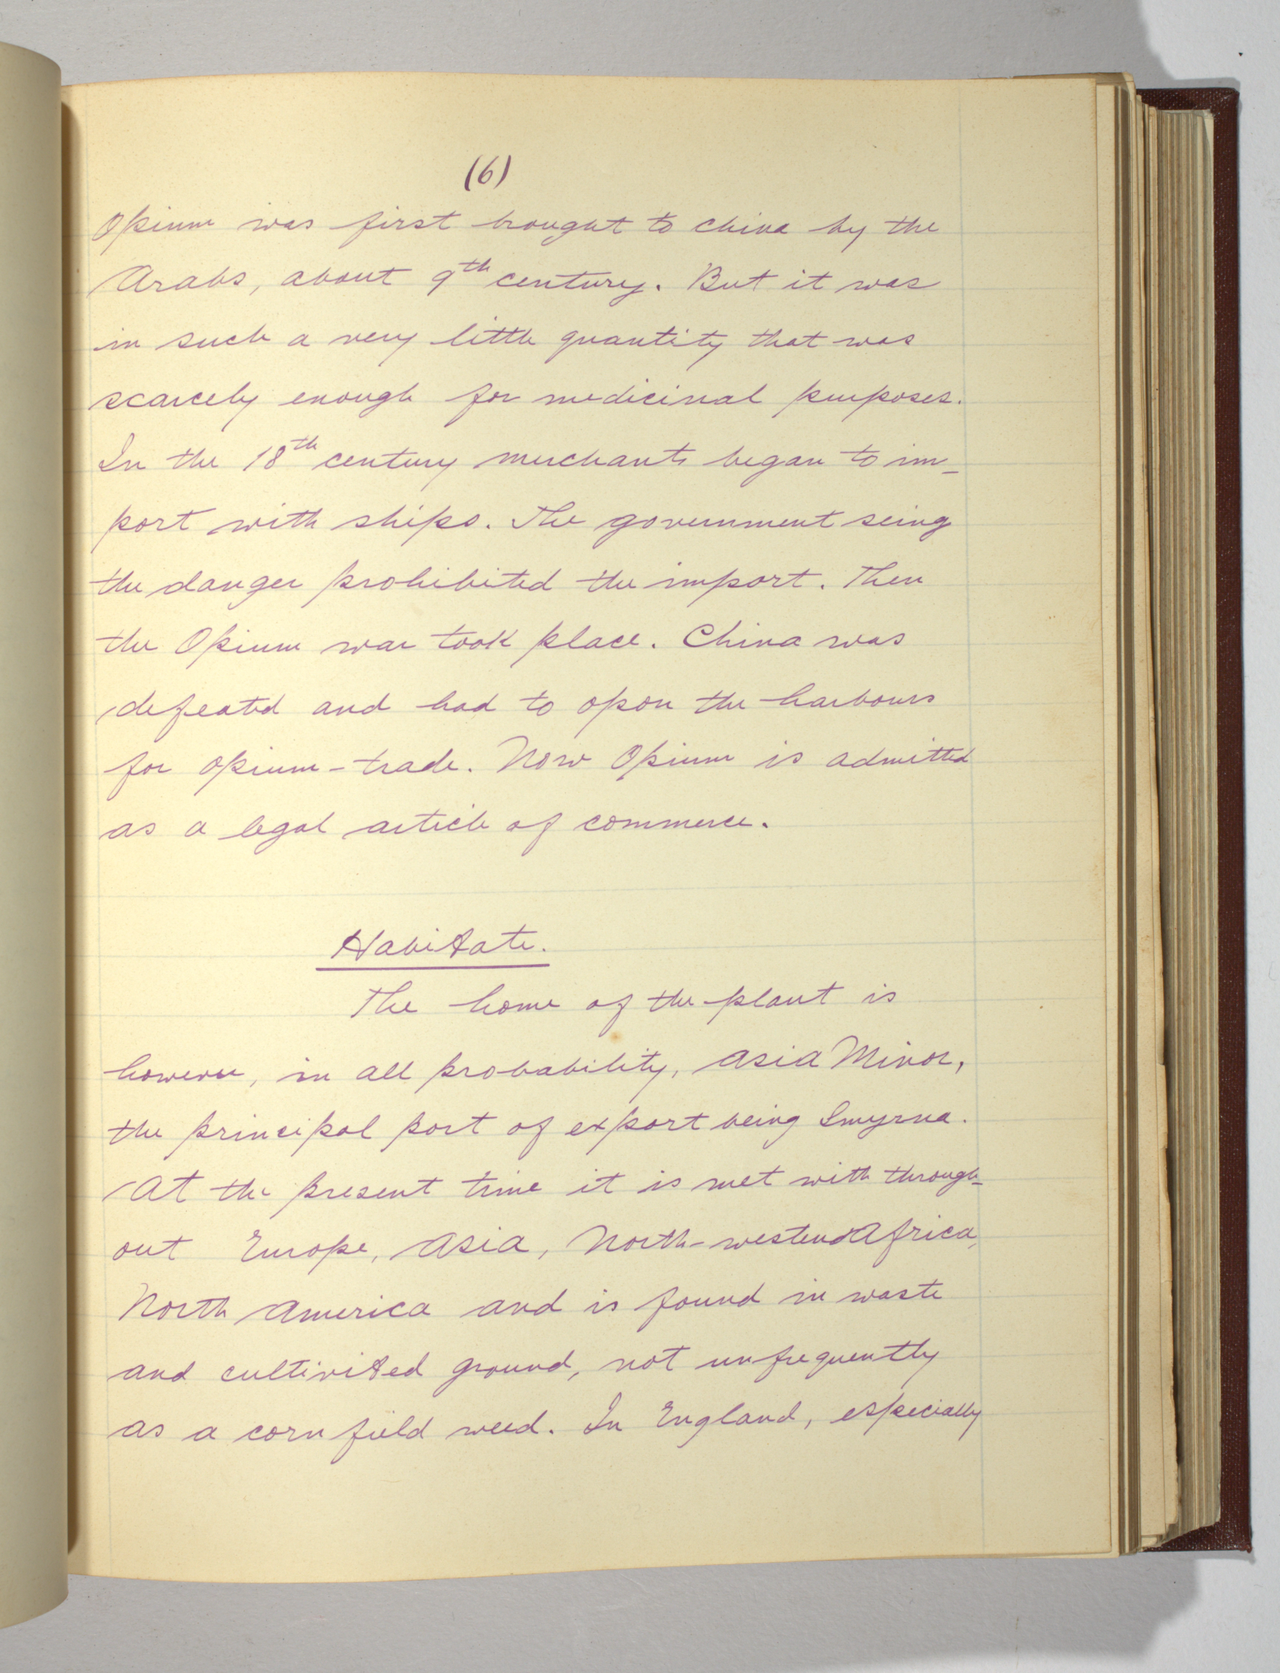 (6)
Opium was first brought to China by the
Arabs, about 9th century. But it was
in such a very little quantity that was
scarcely enough for medicinal purposes.
In the 18th century merchants began to im-
port with ships. The government seing
the danger prohibited the import. Then
the Opium war took place. China was
defeated and had to open the harbours
for opium-trade. Now Opium is admitted
as a legal article of commerce.
Habitate.
The home of the plant is
however, in all probability, Asia Minor,
the principal port of export being Smyrna.
At the present time it is met with through-
out Europe, Asia, North-western Africa,
North America and is found in waste
and cultivited ground, not unfrequently
as a corn field weed. In England, especially